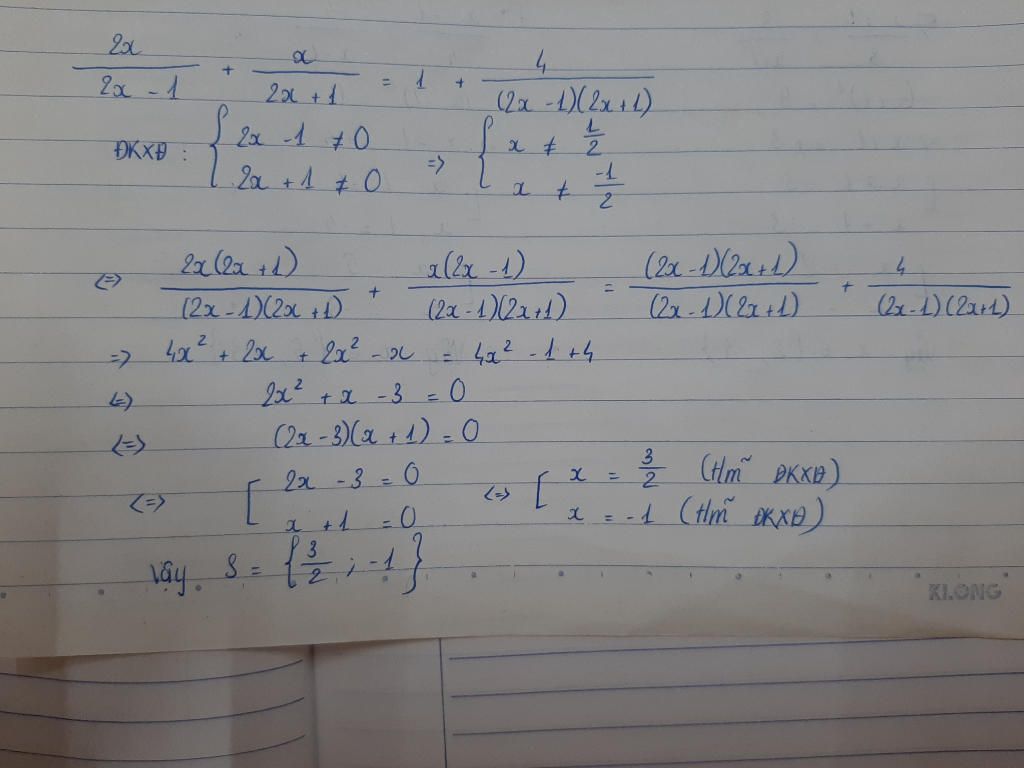 2x/(2x - 1) + x/(2x + 1) = 1 + 4/((2x - 1)(2x + 1))
ĐKXĐ : { 2x - 1 ≠ 0 ; 2x + 1 ≠ 0 => { x ≠ 1/2 ; x ≠ -1/2
<=> 2x(2x + 1)/((2x - 1)(2x + 1)) + x(2x - 1)/((2x - 1)(2x + 1)) = (2x - 1)(2x + 1)/((2x - 1)(2x + 1)) + 4/((2x - 1)(2x + 1))
=> 4x² + 2x + 2x² - x = 4x² - 1 + 4
<=> 2x² + x - 3 = 0
<=> (2x - 3)(x + 1) = 0
<=> [ 2x - 3 = 0 ; x + 1 = 0 <=> [ x = 3/2 (tm~ ĐKXĐ) ; x = -1 (tm~ ĐKXĐ)
Vậy S = { 3/2 ; -1 }
KLONG